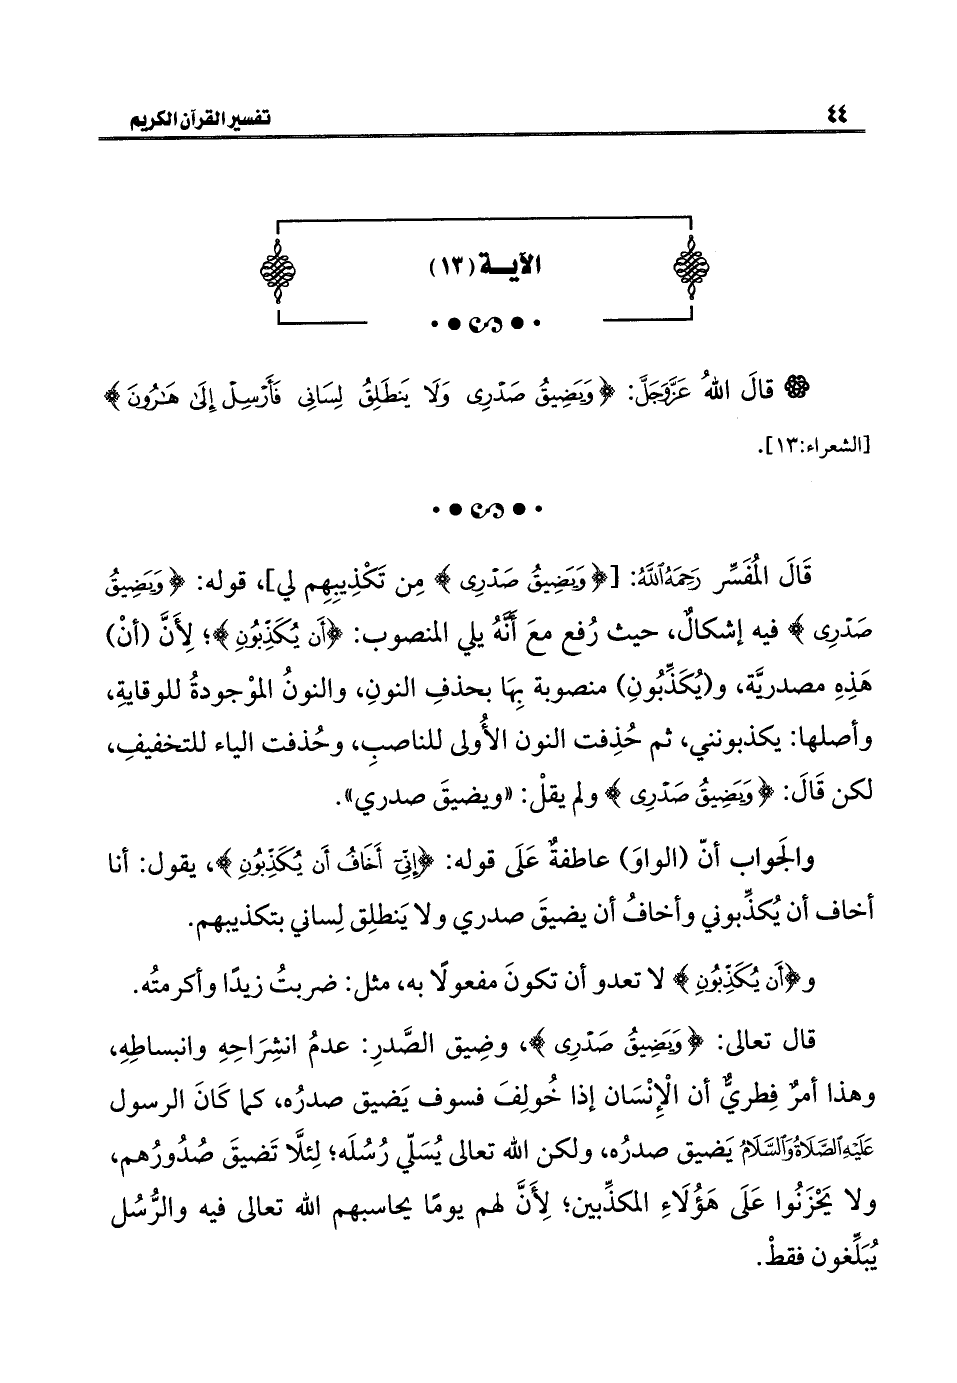 ٤٤
تفسير القرآن الكريم
الآيــة (١٣)
قالَ اللهُ عَزَّوَجَلَّ: ﴿وَيَضِيقُ صَدْرِى وَلَا يَنطَلِقُ لِسَانِى فَأَرْسِلْ إِلَىٰ هَـٰرُونَ﴾
[الشعراء:١٣].
قَالَ المُفَسِّر رَحِمَهُ اللَّهُ: [﴿وَيَضِيقُ صَدْرِى﴾ مِن تَكْذِيبِهِم لي]، قوله: ﴿وَيَضِيقُ
صَدْرِى﴾ فيه إشكالٌ، حيث رُفع معَ أَنَّهُ يلي المنصوب: ﴿أَن يُكَذِّبُونِ﴾؛ لِأَنَّ (أنْ)
هَذِهِ مصدريَّة، و(يُكَذِّبُونِ) منصوبة بِهَا بحذفِ النونِ، والنونُ الموْجودةُ للوقايةِ،
وأصلها: يكذبونني، ثم حُذِفت النون الأُولى للناصبِ، وحُذفت الياء للتخفيفِ،
لكن قَالَ: ﴿وَيَضِيقُ صَدْرِى﴾ ولم يقلْ: «ويضيقَ صدري».
والجَواب أنّ (الواوَ) عاطفةٌ عَلَى قوله: ﴿إِنِّىٓ أَخَافُ أَن يُكَذِّبُونِ﴾، يقول: أنا
أخاف أن يُكذِّبوني وأخافُ أن يضيقَ صدري ولا يَنطلِق لِساني بتكذيبهم.
و﴿أَن يُكَذِّبُونِ﴾ لا تعدو أن تكونَ مفعولًا به، مثل: ضربتُ زيدًا وأكرمتُه.
قال تعالى: ﴿وَيَضِيقُ صَدْرِى﴾، وضِيق الصَّدرِ: عدمُ انشِرَاحِهِ وانبساطِهِ،
وهذا أمرٌ فِطريٌّ أن الْإِنْسَان إذا خُولِفَ فسوف يَضيق صدرُه، كما كَانَ الرسول
عَلَيْهِ الصَّلَاةُ وَالسَّلَامُ يَضيق صدرُه، ولكن الله تعالى يُسَلّي رُسُلَه؛ لِئلَّا تَضيقَ صُدُورُهم،
ولا يَحْزَنُوا عَلَى هَؤُلَاءِ المكذِّبين؛ لِأَنَّ لهم يومًا يحاسبهم الله تعالى فيه والرُّسُل
يُبَلِّغون فقطْ.